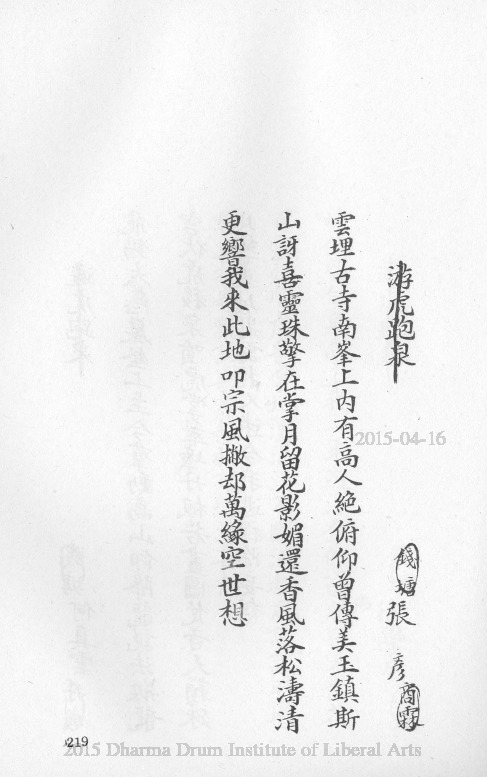 游虎跑泉
錢塘張彥商霖
雲埋古寺南峯上內有高人絕俯仰曾傳美玉鎮斯
山訝喜靈珠擎在掌月留花影媚還香風落松濤清
更響我來此地叩宗風撇却萬緣空世想
2015-04-16
219
2015 Dharma Drum Institute of Liberal Arts